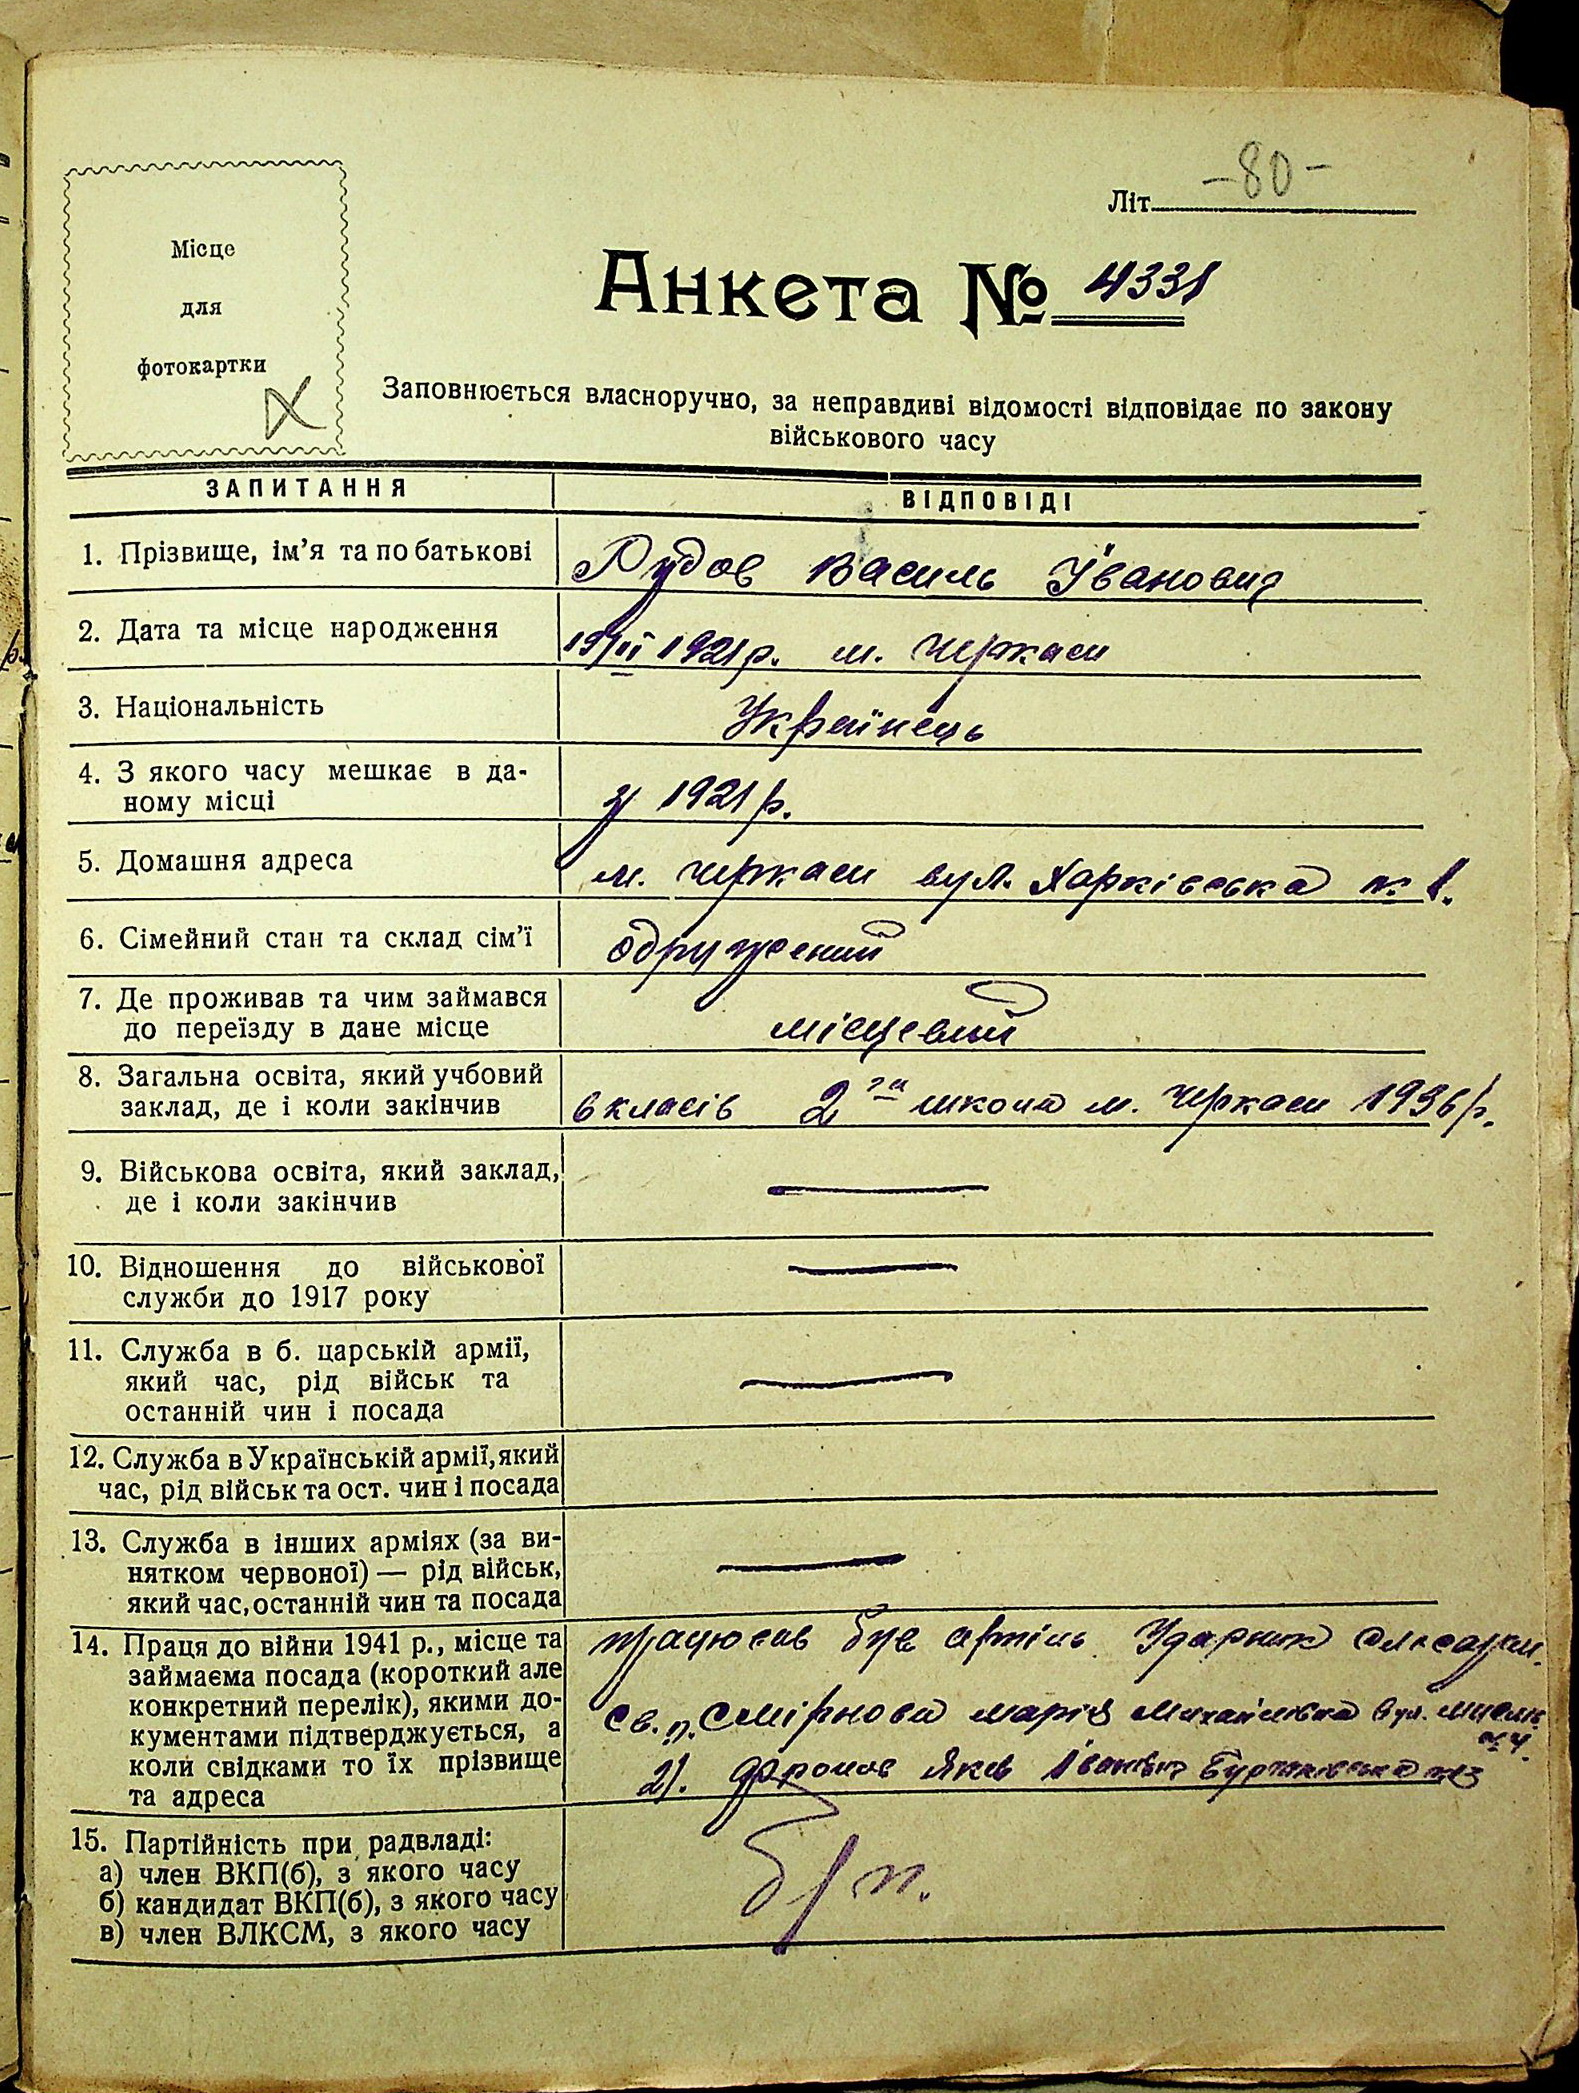 -80-
Літ.
Місце
для
фотокартки
Анкета № 4331
Заповнюється власноручно, за неправдиві відомості відповідає по закону
військового часу
ЗАПИТАННЯ ВІДПОВІДІ
1. Прізвище, ім'я та по батькові Рудов Василь Іванович
2. Дата та місце народження 19/II 1921 р. м. Черкаси
3. Національність Українець
4. З якого часу мешкає в да-
ному місці з 1921 р.
5. Домашня адреса м. Черкаси вул. Харківська № 1.
6. Сімейний стан та склад сім'ї одружений
7. Де проживав та чим займався
до переїзду в дане місце місцевий
8. Загальна освіта, який учбовий
заклад, де і коли закінчив 6 класів 2га школа м. Черкаси 1936 р.
9. Військова освіта, який заклад,
де і коли закінчив —
10. Відношення до військової
служби до 1917 року —
11. Служба в б. царській армії,
який час, рід військ та
останній чин і посада —
12. Служба в Українській армії, який
час, рід військ та ост. чин і посада
13. Служба в інших арміях (за ви-
нятком червоної) — рід військ,
який час, останній чин та посада —
14. Праця до війни 1941 р., місце та
займаєма посада (короткий але
конкретний перелік), якими до-
кументами підтверджується, а
коли свідками то їх прізвище
та адреса
працював був артіль Ударник слюсарем.
св. Смірнова марія Михайлівна вул.
2). Яків
15. Партійність при радвладі:
а) член ВКП(б), з якого часу
б) кандидат ВКП(б), з якого часу
в) член ВЛКСМ, з якого часу
б/п.